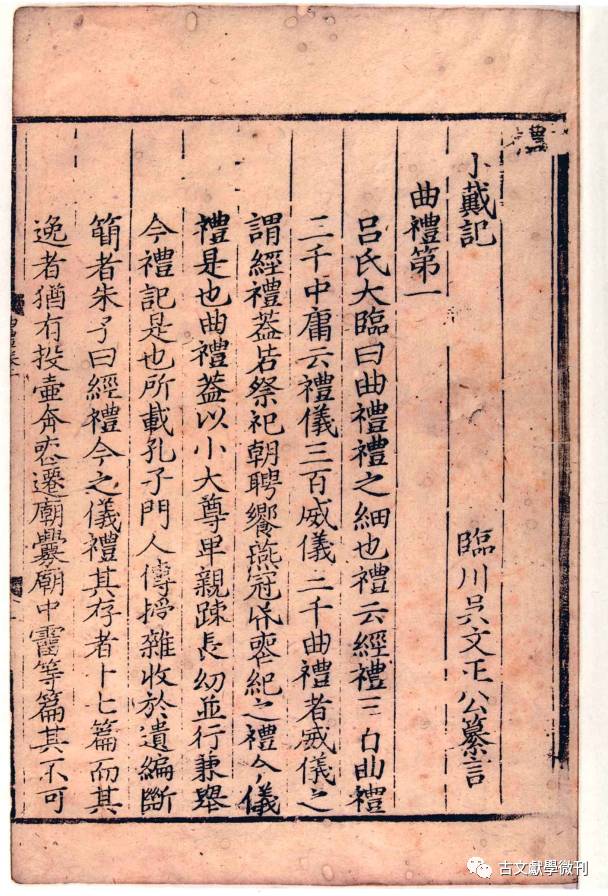 小戴記　臨川吳文正公纂言
曲禮第一
呂氏大臨曰曲禮禮之細也禮云經禮三百曲禮
三千中庸云禮儀三百威儀三千曲禮者威儀之
謂經禮葢皆祭祀朝聘饗燕冠昏喪紀之禮今儀
禮是也曲禮葢以小大尊卑親踈長幼並行兼舉
今禮記是也所載孔子門人傳授雜收於遺編斷
簡者朱子曰經禮今之儀禮其存者十七篇而其
逸者猶有投壺奔喪遷廟釁廟中霤等篇其不可
古文獻學微刊